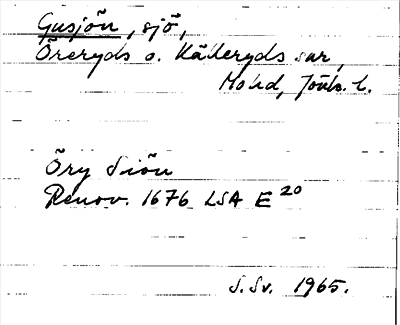 Gusjön, sjö,
Öreryds o. Kålleryds snr,
Mo hd, Jönk. l.
Öry Siön
Renov. 1676 LSA E 20
S. Sv. 1965.